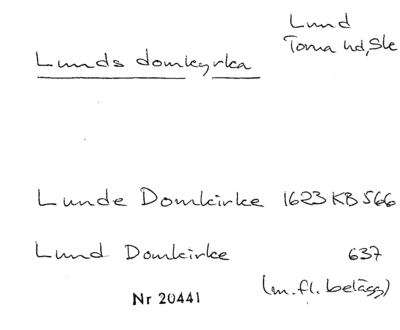 Lund
Torna hd, Sk
Lunds domkyrka
Lunde Domkirke 1623 KB 566
Lund Domkirke 637
(m.fl. belägg)
Nr 20441